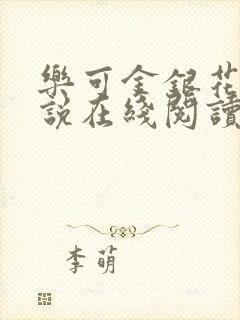 樂可金銀花
說在綫閱讀
李萌